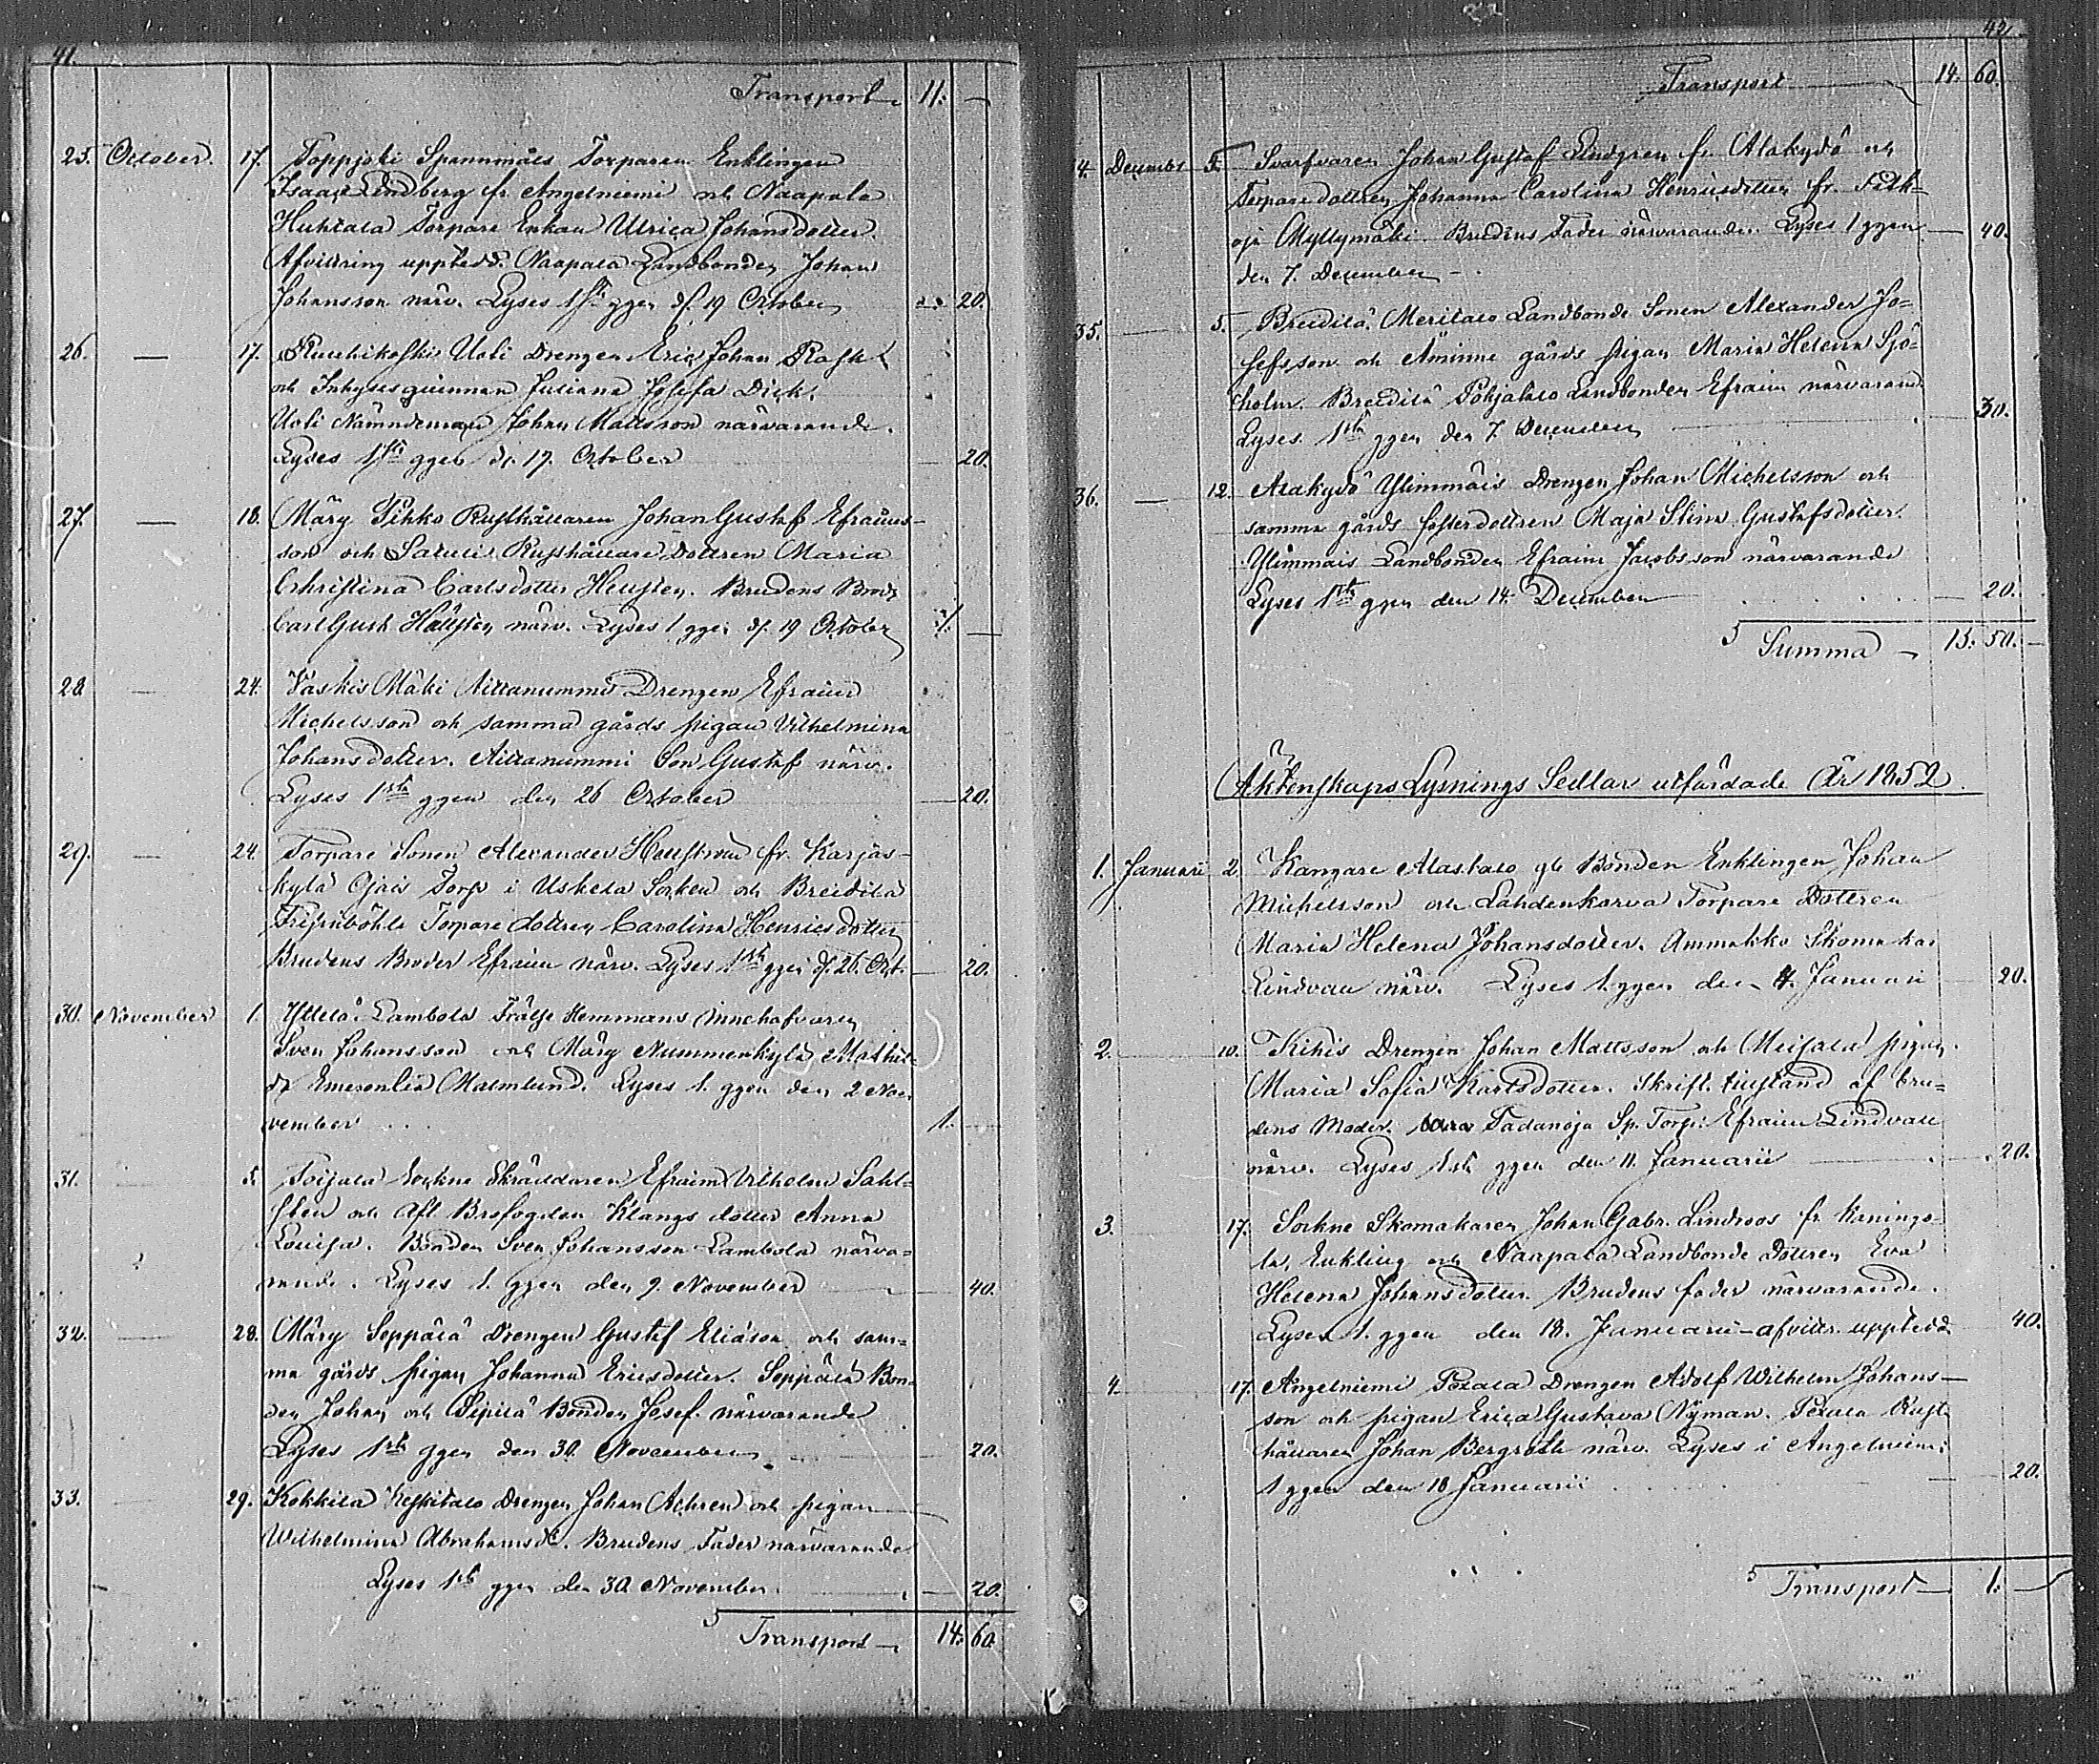 41.
Transport 11. —
25. October. 17. Toppjoki Spannmåls Torparen Enklingen
Isaac Lindberg fr. Angelniemi och Naapala
Huhtala Torpare Enkan Ulrica Johansdotter.
Afvittring uppted. Naapala Landbonden Johan
Johansson närv. Lyses 1sta ggen d. 19 October 20.
26. — 17. Uoli Drengen Eric Johan Rask
och Inhysesqvinnan Juliana Josefa Dick.
Uoli Nämndeman Johan Mattsson närvarande.
Lyses 1sta ggen d. 17. October — 20.
27. — 18. Märy Pihko Rusthållaren Johan Gustaf Efraims-
son och Rusthållare Dottren Maria
Christina Carlsdotter. Brudens Brod
Carl Gust närv. Lyses 1 ggen d. 19 October 1. —
28. — 24. Vaskis Mäki Aittanummi Drengen Efraim
Michelsson och samma gårds pigan Vilhelmina
Johansdotter. Aittanummi Son Gustaf närv.
Lyses 1sta ggen den 26 October — 20.
29. — 24. Torpare Sonen Alexander fr. Karjas-
kylä Ojais Torp i Uskela Socken och Breidilä
Torpare dottren Carolina Henricsdotter
Brudens Broder Efraim närv. Lyses 1sta ggen d. 26. Oct. — 20.
30. November 1. Yttelä Lambola Frälse Hemmans Innehafvaren
Sven Johansson och Märy Nummenkylä Mathil-
da Emerentia Malmlund. Lyses 1. ggen den 2 No-
vember 1. —
31. — 5. Toijala Sockne Skräddaren Efraim Vilhelm Sahl-
sten och Afl. Brofogden Klangs dotter Anna
Lovisa. Bonden Sven Johansson Lambola närva-
rande. Lyses 1. ggen den 9. November — 40.
32. — 28. Märy Seppälä Drengen Gustaf Eliasson och sam-
ma gårds pigan Johanna Ericsdotter. Seppälä Bon-
den Johan och Sipilä Bonden Josef närvarande
Lyses 1sta ggen den 30 November 20.
33. — 29. Kokkila Keskitalo Drengen Johan Achren och pigan
Wilhelmina Abrahamsd. Brudens Fader närvarande
Lyses 1sta ggen den 30 November — 20.
Transport — 14. 60.
42.
Transport 14. 60.
4. Decembr 5. Svarfvaren Johan Gustaf Lindgren fr. Alakydö och
Torpare dottren Johanna Carolina Henricsdotter fr.
oja Myllymäki. Brudens Fader närvarande. Lyses 1 ggen — 40.
den 7. December —
35. — 5. Breidilä Meritalo Landbonde Sonen Alexander Jo-
sefsson och Åminne gårds pigan Maria Helena Sjö-
holm. Breidilä Pohjatalo Landbonden Efraim närvarande
Lyses 1sta ggen den 7 December — 30.
36. — 12. Alakydö Ylimmäis Drengen Johan Michelsson och
samma gårds fosterdottren Maja Stina Gustafsdotter.
Ylimmäis Landbonden Efraim Jacobsson närvarande
Lyses 1sta ggen den 14 December — 20.
Summa — 15. 50. —
Äktenskaps Lysnings Sedlar utfärdade År 1852.
1. Januarii 2. Kangare Alastalo gl. Bonden Enklingen Johan
Michelsson och Lahdenkorva Torpare Dottren
Maria Helena Johansdotter. Ammakko Skomakar
Lindvall närv. Lyses 1. ggen den 4. Januari — 20.
2. — 10. Kihis Drengen Johan Mattsson och Meijala pigan
Maria Sofia Karlsdotter. Skrift. tillstånd af bru-
dens Moder. Tadanoja Sp. Torp. Efraim Lindvall
närv. Lyses 1sta ggen den 11. Januarii — 20.
3. 17. Sockne Skomakaren Johan Gabr. Lindroos fr. Kaningo-
la, Enkling och Naapala Landbonde Dottren Eva
Helena Johansdotter. Brudens fader närvarande.
Lyses 1. ggen den 18. Januarii — afvittr. uppted 40.
4. 17. Angelniemi Pexala Drengen Adolf Wilhelm Johans-
son och pigan Erica Gustava Nyman. Pexala Rust-
hållaren Johan Bergroth närv. Lyses i Angelniemi
1 ggen den 18 Januarii 20.
Transport — 1. —